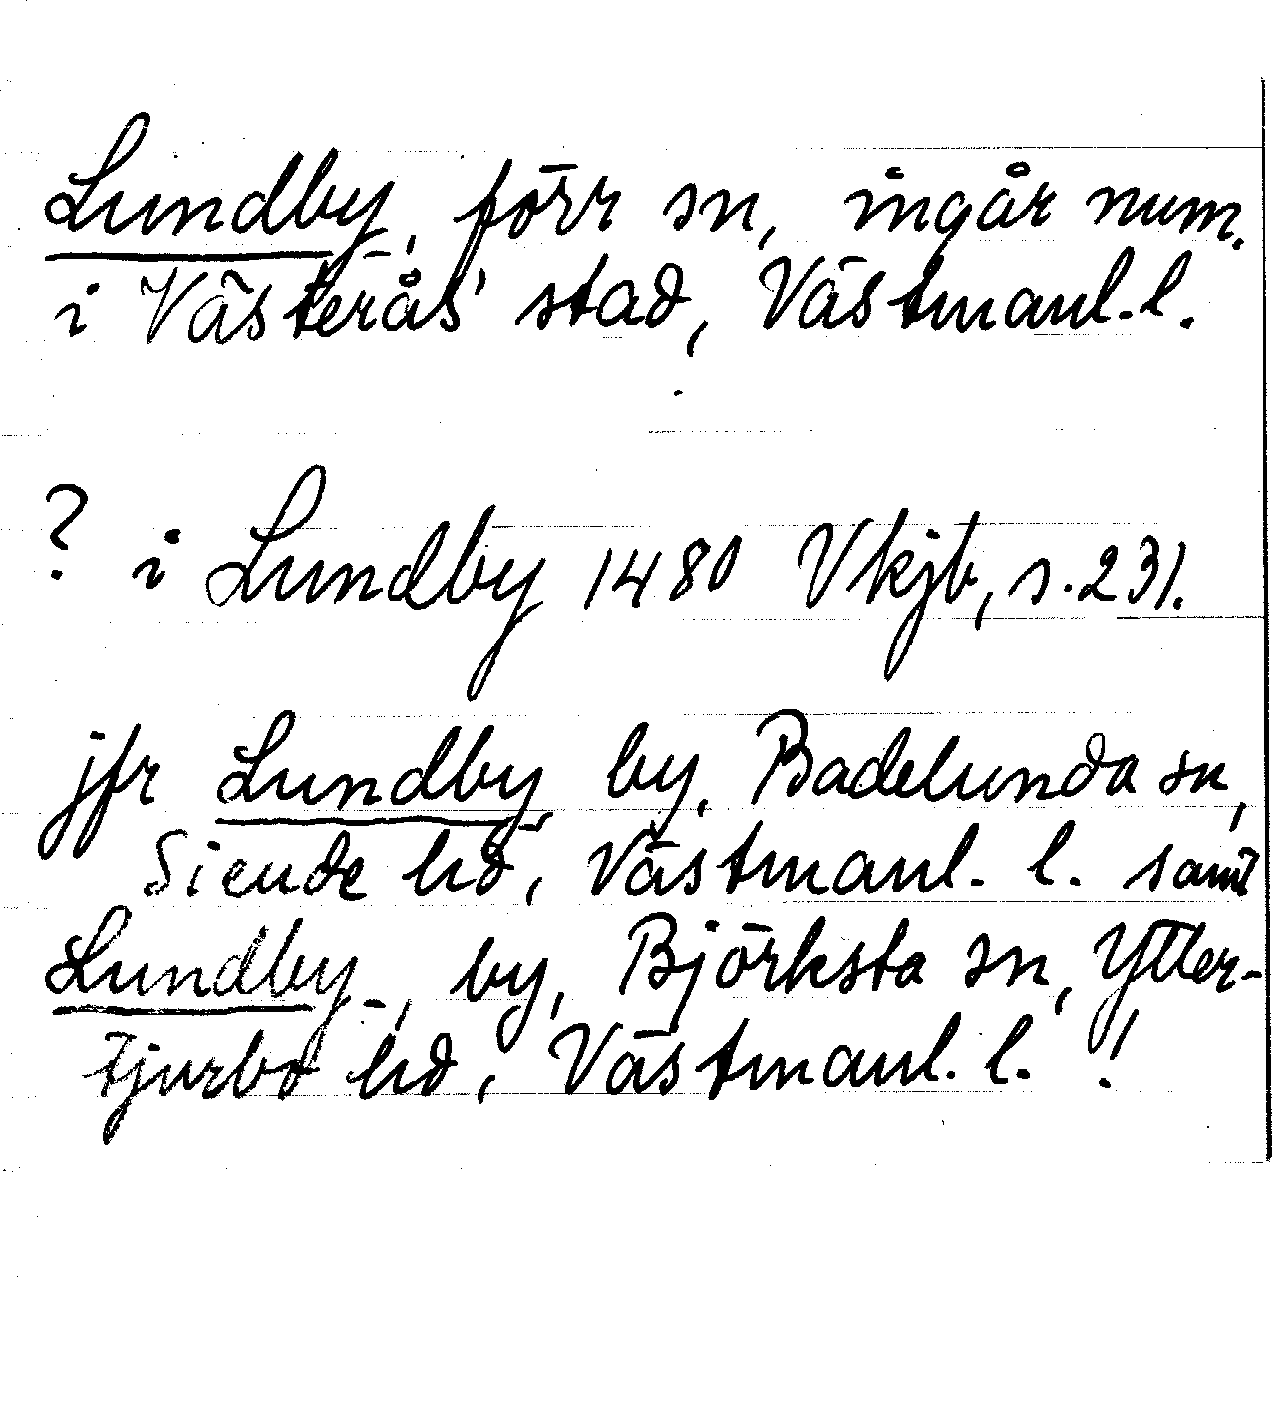 Lundby, förr sn, ingår num.
i Västerås' stad, Västmanl. l.
? i Lundby 1480 Vkjb, s. 231.
jfr Lundby by, Badelunda sn,
Siende hd, Västmanl. l. samt
Lundby, by, Björksta sn, Ytter-
tjurbo hd, Västmanl. l. !